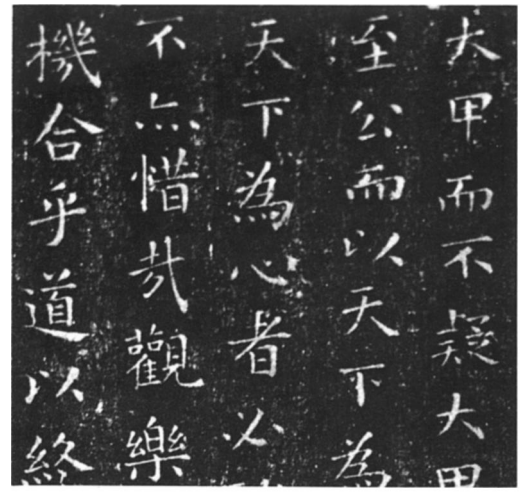 大甲而不疑大甲
至公而以天下為
天下為心者必
不亦惜哉觀樂
機合乎道以終